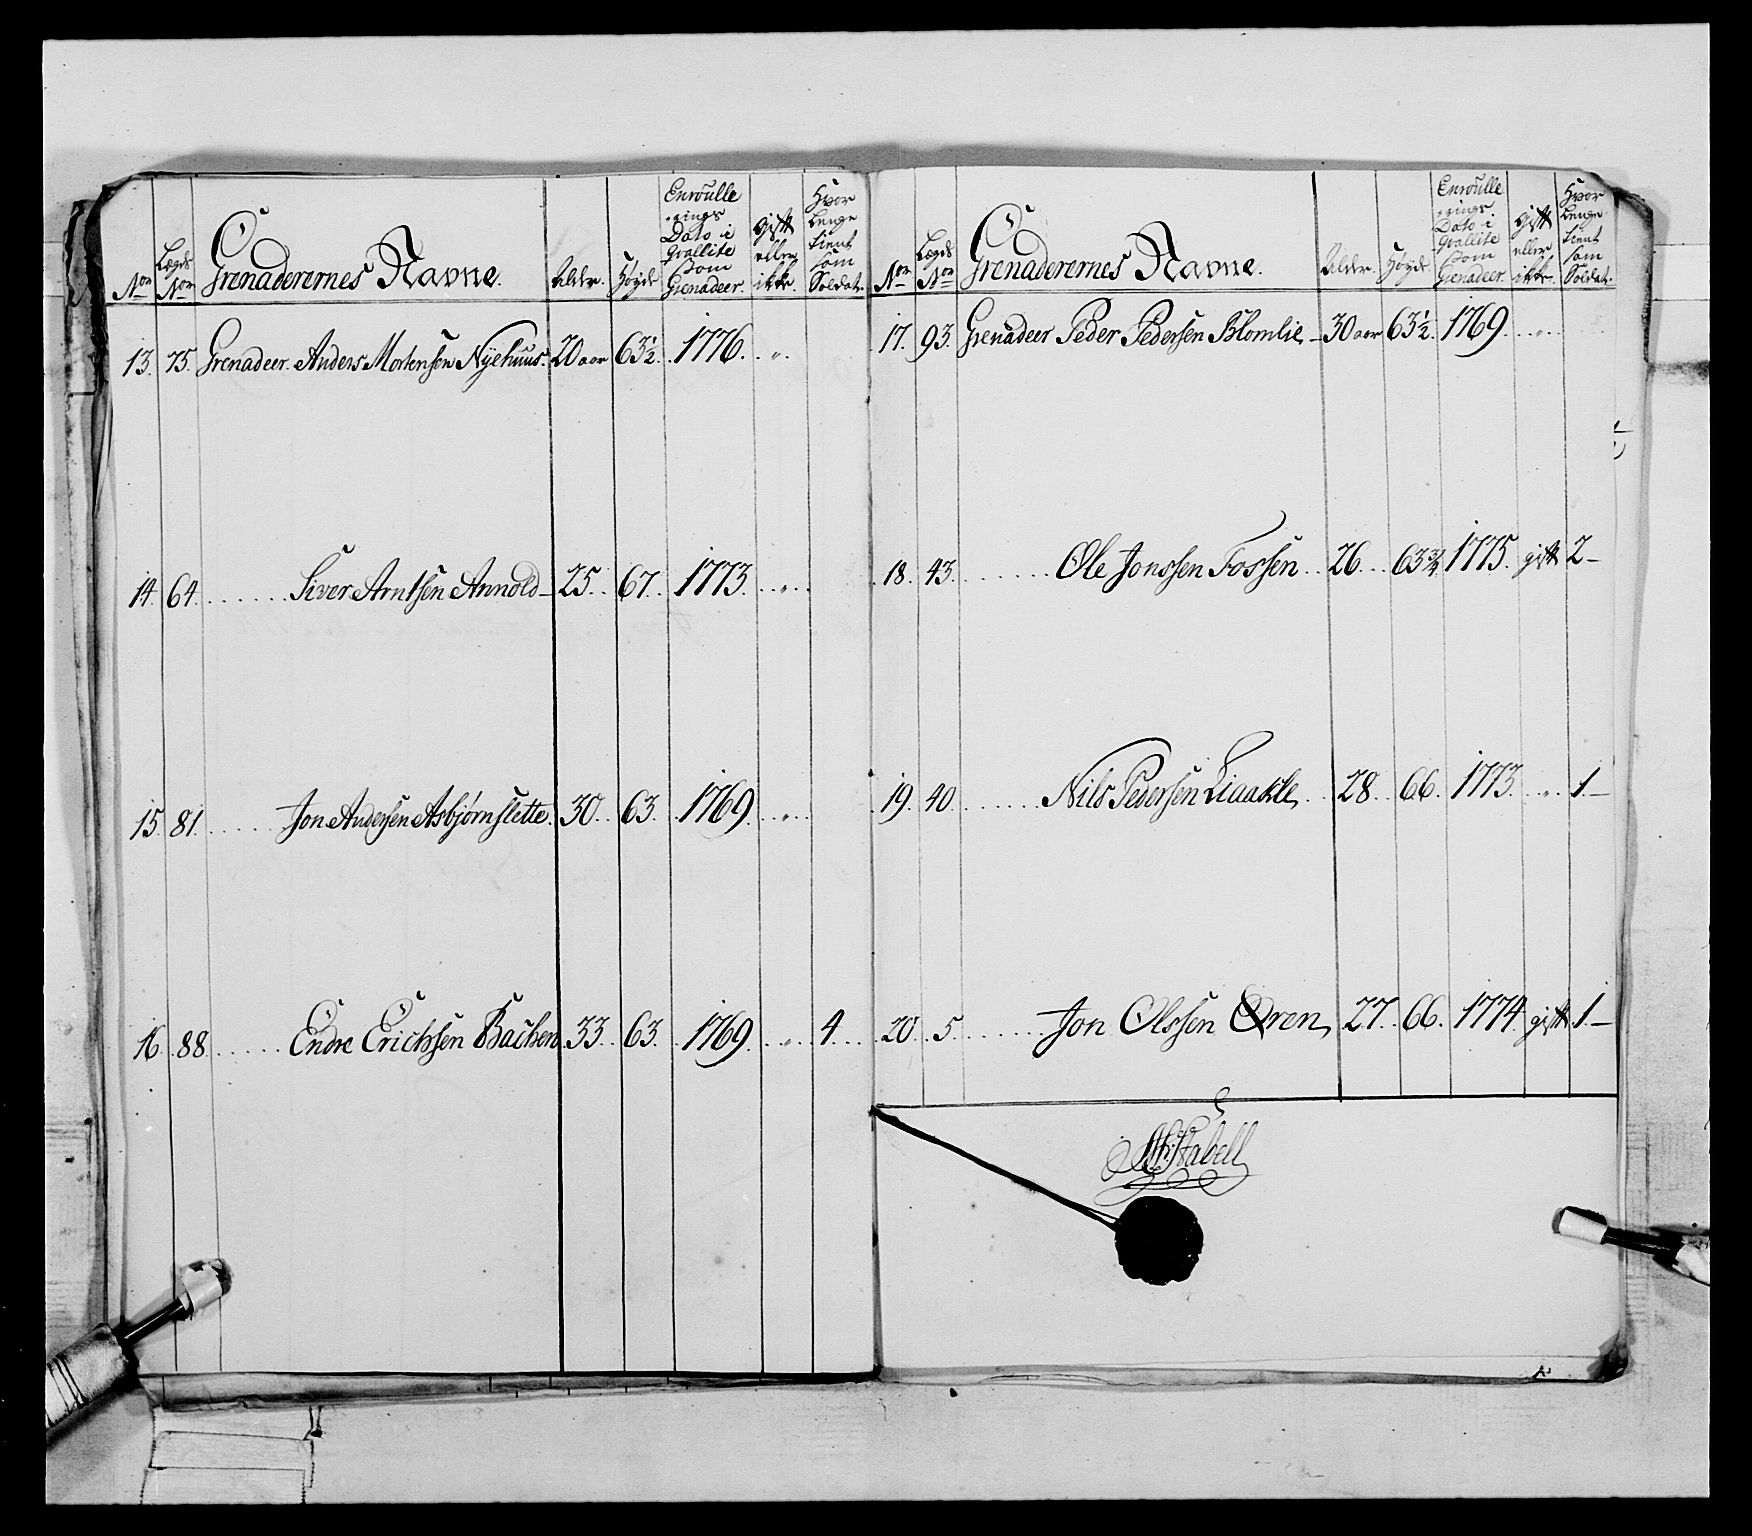 No. Lægds No. Grenaderernes Navne. Alder. Høyde Enroulle rings Dato i Qvallite som Grenadeer. Gift eller ikke. Hvor Lenge tient som Soldat.
13. 75. Grenadeer. Anders Mortensen Nyehuus. 20 aar 63½. 1776. „.
14. 64. Siver Arntsen Arnnold 25. 67. 1773. „
15. 81. Jon Andersen Asbjørnslette. 30. 63. 1769. „
16. 88. Endre Erichsen Bachen 33. 63. 1769. „ 4.
No. Lægds No. Grenaderernes Navne. Alder. Høyde. Enroulle rings Dato i Qvallite som Grenadeer. Gift eller ikke. Hvor Lenge tient som Soldat.
17. 93. Grenadeer Peder Pedersen Blomlie 30 aar 63½. 1769. „
18. 43. Ole Jonssen Fossen 26. 63¾. 1775. gift 2-
19. 40. Nils Pedersen Liaakle 28. 66. 1773. „ 1-
20. 5. Jon Olssen Øren 27. 66. 1774. gift 1-
Stabell